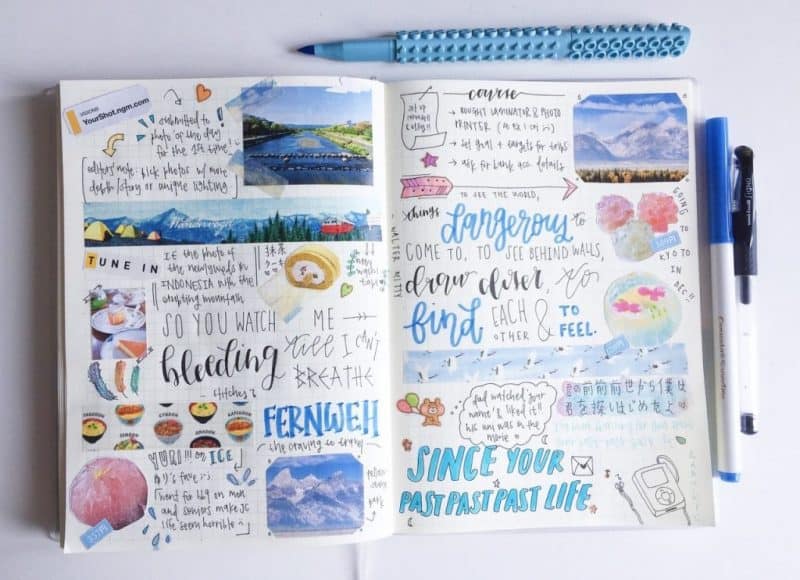 YourShot.ngm.com
submitted to
photo of the day
for the 1st time
editors' note: pick photos w/ more
depth/story or unique lighting
Wanderlust
TUNE IN
IE the photo of
the newlyweds in
INDONESIA with the
erupting mountain
抹茶
SO YOU WATCH ME
bleeding till I CAN'T
BREATHE
- stitches
FERNWEH
the craving to travel
ICE
went for
and seniors make JC
life seem horrible
course
→ BOUGHT LAMINATOR & PHOTO
PRINTER
→ set goal + targets for trips
→ ask for bank acc details
TO SEE THE WORLD,
things dangerous to
COME TO, TO SEE BEHIND WALLS,
draw closer, to
find EACH OTHER & TO FEEL.
WALTER MITTY
GOING
TO
KYOTO
IN
DEC!!
dad watched 'your
name' & liked it!!
his uni was in the
movie
君の前前前世から僕は
君を探しはじめたよ
SINCE YOUR
PASTPASTPAST LIFE